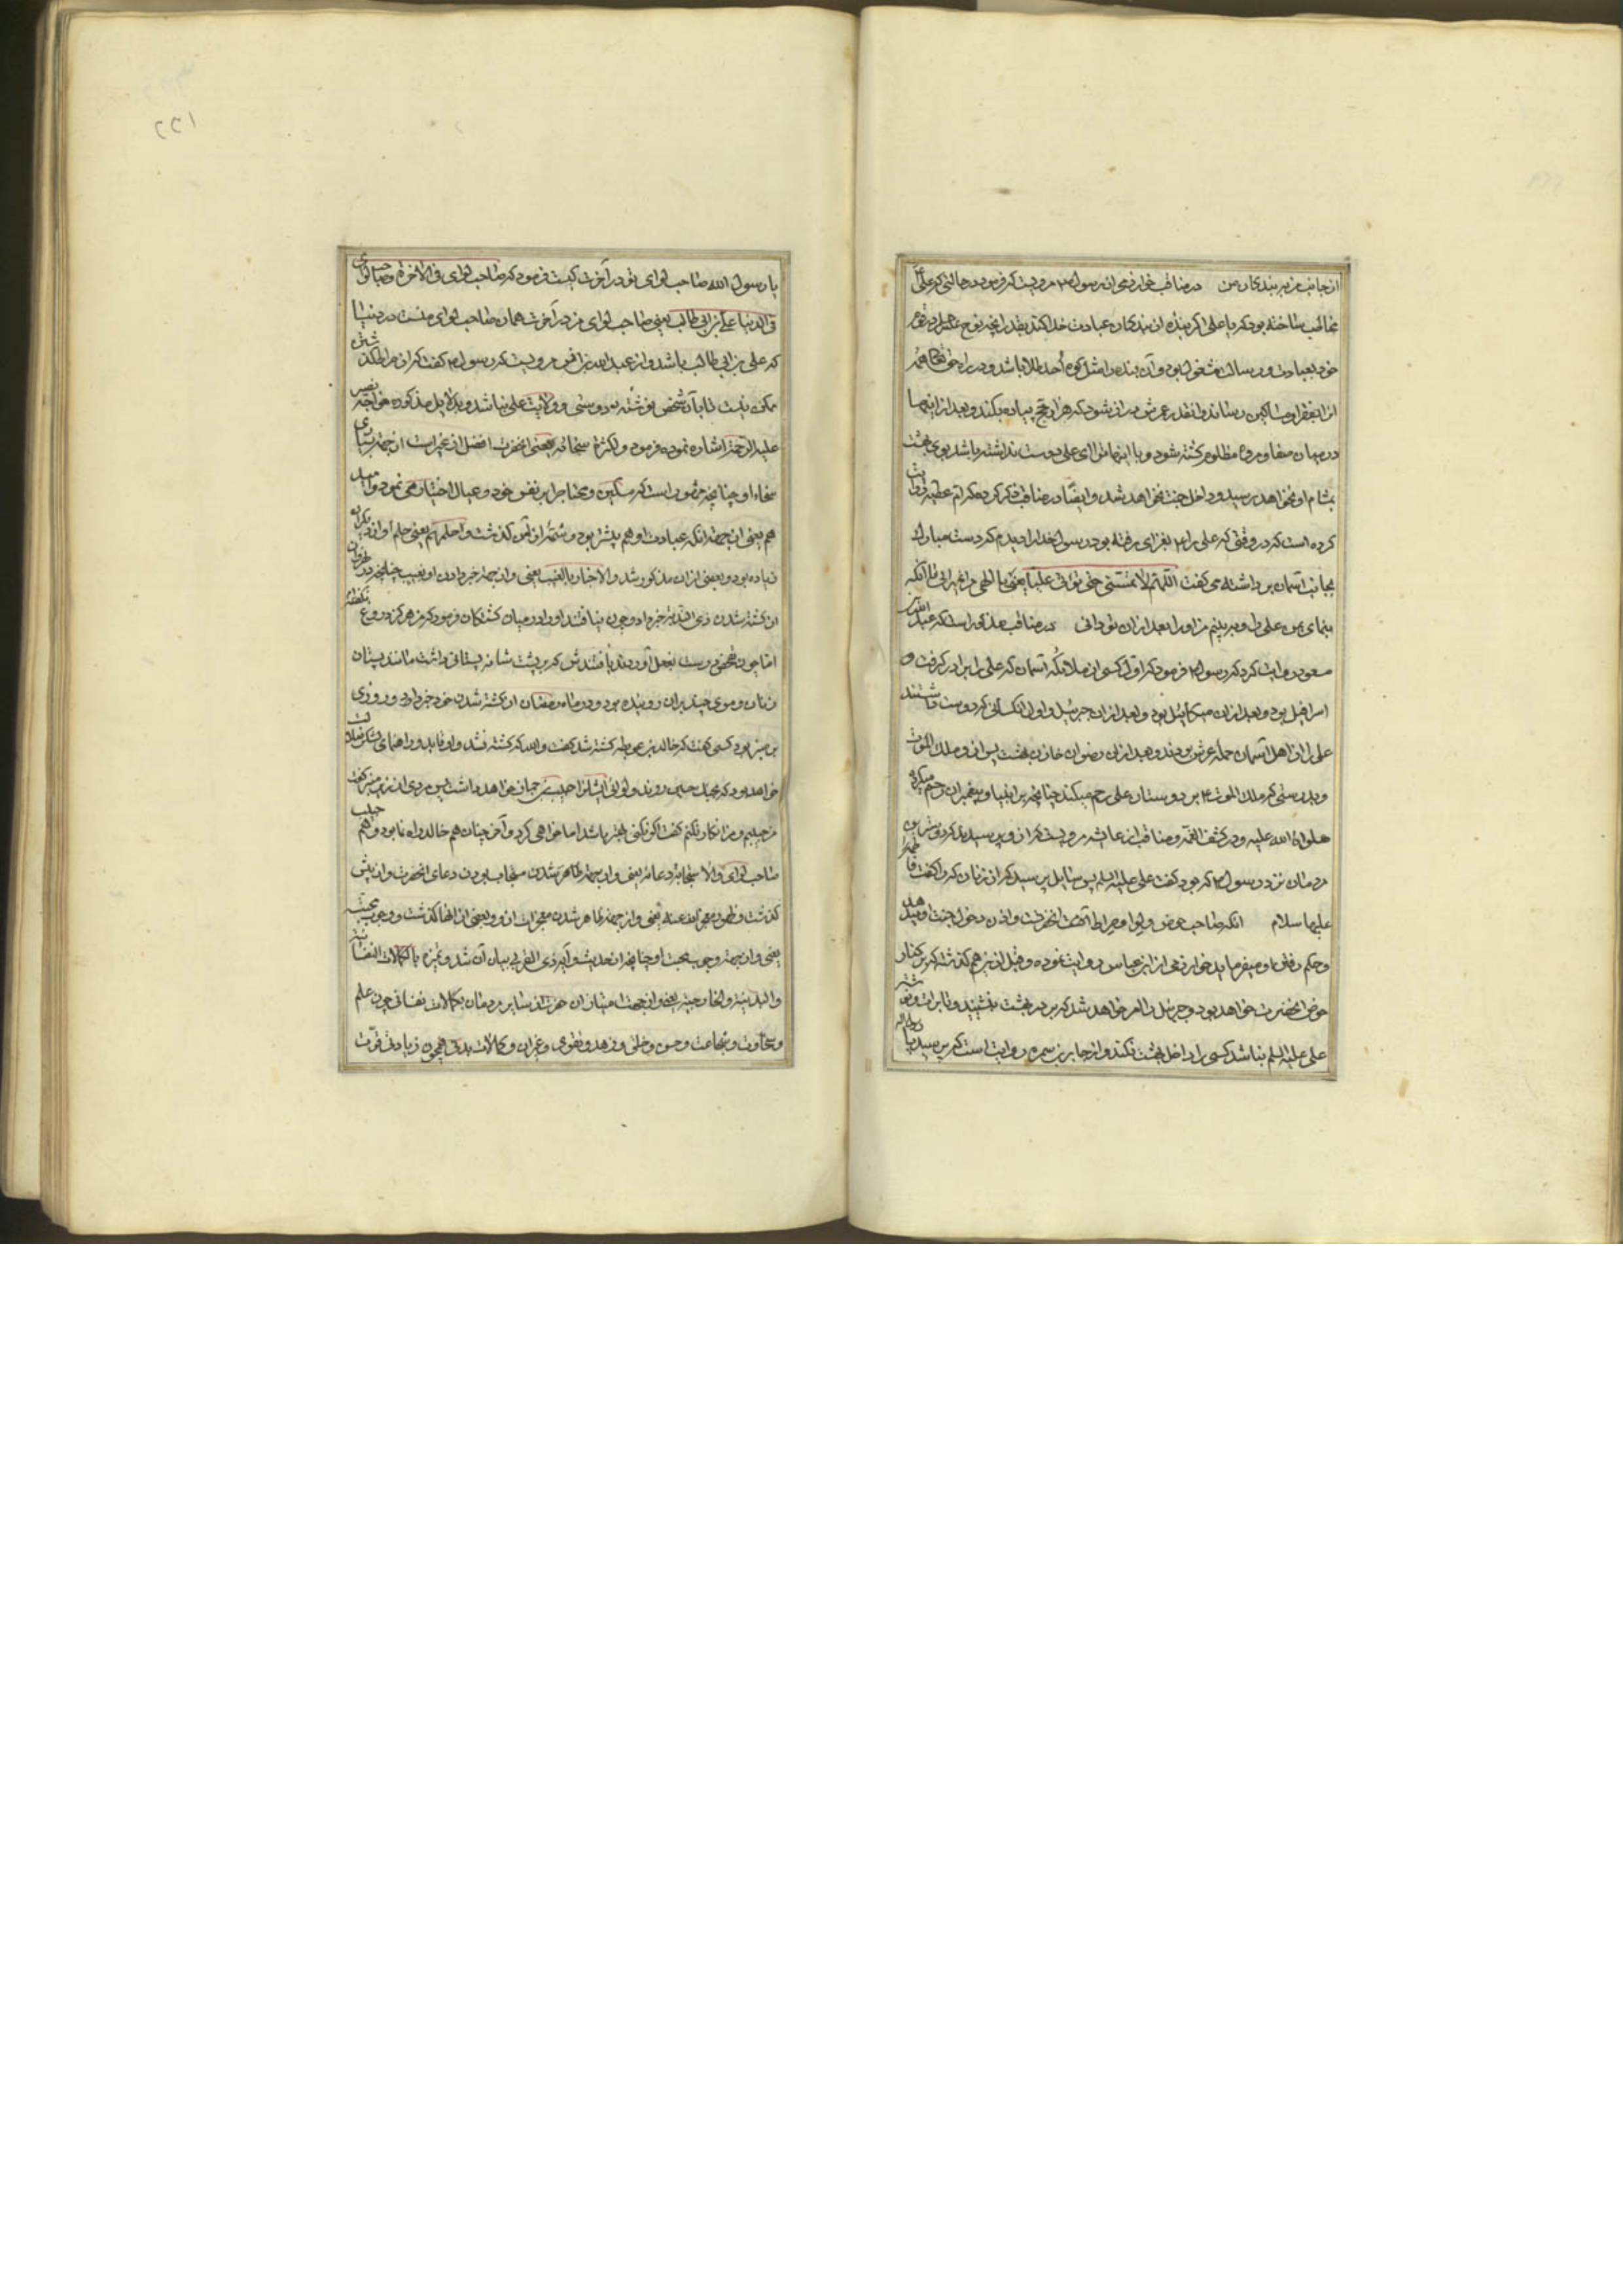 از جانب من بر بندگان من در مناقب خوارزمی از رسول مرویست که فرمود در حالتی که علی را
مخاطب ساخته بود که یا علی اگر بنده از بندگان عبادت خدا کند بقدر آنچه نوح علیه در قوم
خود بعبادت و رسالت مشغول بود و آن بنده را مثل کوه احد طلا باشد و در راه حق تعالی همه
انرا بفقرا و مساکین رساند و انقدر عمرش دراز شود که هزار حج پیاده بکند و بعد از اینها
در میان صفا و مروه مظلوم کشته شود و با اینها ترا ای علی دوست نداشته باشد بوی بهشت
بمشام او نخواهد رسید و داخل جنت نخواهد شد و ایضا در مناقب ذکر کرده که ام عطیه روایت
کرده است که در وقتی که علی را بغزای رفته بود رسول خدا را دیدم که دست مبارک
بجانب آسمان برداشته می گفت اللهم لا تمتنی حتی ترانی علیا یعنی یا الهی مرا نمیرانی تا آنکه
بنمای بمن علی را و ببینم من او را بعد از ان تو دانی در مناقب مذکور است که عبدالله
مسعود روایت کرد که رسول فرمود که اول کسی از ملائکه آسمان که علی را برادر گرفت
اسرافیل بود و بعد از ان میکائیل بود و بعد از ان جبرئیل و اول کسانی که دوست داشتند
علی را از اهل آسمان حمله عرش بودند و بعد از ان رضوان خازن بهشت پس از او ملک الموت
و بدرستی که ملک الموت بر دوستان علی رحم میکند چنانچه بر انبیا و پیغمبران رحم میکرد
صلواة الله علیه و در کشف الغمه و مناقب از عایشه مرویست که از وی پرسیدند که دوسترین
مردمان نزد رسول که بود گفت علی علیه السلم پس سایل پرسید که از زنان که را گفت فاطمه
علیها سلام انکه صاحب حوض و لوا و صراط آنحضرت و اذن دخول جنت او میدهد
و حکم رفاق او میفرماید خوارزمی از ابن عباس روایت نموده و قبل از نیز هم گذشت که بر کنار
حوض انحضرت خواهد بود و جبرئیل را امر خواهد شد که بر در بهشت بنشیند و تا برات
علی علیه السلم نباشد کسی را داخل بهشت نکند و از جابر بن سمره روایت است که پرسیدند
یا رسول الله صاحب لوای تو در آخرت کیست فرمود که صاحب لوای فی الاخرة و صاحب لوای
فی الدنیا علی بن ابی طالب یعنی صاحب لوای من در آخرت همان صاحب لوای منست در دنیا
که علی بن ابی طالب باشد و از عبد الله بن انس مرویست که رسول گفت که از صراط گذشتن
ممکن نیست تا با آن شخص نوشته دوستی و ولایت علی نباشد و بدلایل مذکوره خواجه نصیر
علیه الرحمة اشاره نموده فرمود و لکثرة سخائه یعنی انحضرت افضل از غیر است از جهة بسیاری
سخاء او چنانچه مشهور است که مسکین و محتاج را بر نفس خود و عیال اختیار می نمود
هم یعنی از جهة آنکه عبادت او هم بیشتر بود و شمه از آن گذشت و احلمهم یعنی حلم او از دیگران
زیاده بود و بعضی از ان مذکور شد و الاخبار بالغیب یعنی و از جهة خبر دادن او بغیب چنانچه در نهروان
از کشته شدن ذی الثدیه خبر داد و چون نیافتند او را در میان کشتگان فرمود که من هرگز دروغ نگفته
اما چون تفحص درست بفعل آوردند یافتندش که بر پشت شانه پستانی داشت مانند پستان
زنان و موی چند بران روئیده بود و در ماه رمضان از کشته شدن خود خبر داد و روزی
بر منبر بود کسی گفت که خالد بن عرفطه کشته شد گفت والله که کشته نشد و او قاید و راهنمای لشکر ضلالت
خواهد بود که حبیب و لوای لشکر را حبیب بن جماز خواهد داشت پس مردی از زیر منبر گفت
من حبیبم و من انکار نکنم گفت اگر نکنی بهتر باشد اما خواهی کرد و آخر چنان هم خالد راه نما بود و هم حبیب
صاحب لوای و الاستجابة دعائه یعنی و از جهة ظاهر شدن مستجاب بودن دعای انحضرت و از پیش
گذشت و ظهور معجزاته عنه یعنی و از جهة ظاهر شدن معجزات از او و بعضی از انها گذشت و وجوب محبته
یعنی و از جهة وجوب محبت او چنانچه از حدیث و آیه ذی القربی بیان آن شد و تمیزه بالکمالات النفسانیة
و البدنیة و الخارجیة یعنی و از جهت امتیاز ان حضرت از سایر مردمان بکمالات نفسانی چون علم
و سخاوت و شجاعت و حسن و خلق و زهد و تقوی و غیر ان و کمالات بدنی همچون زیادتی قوت